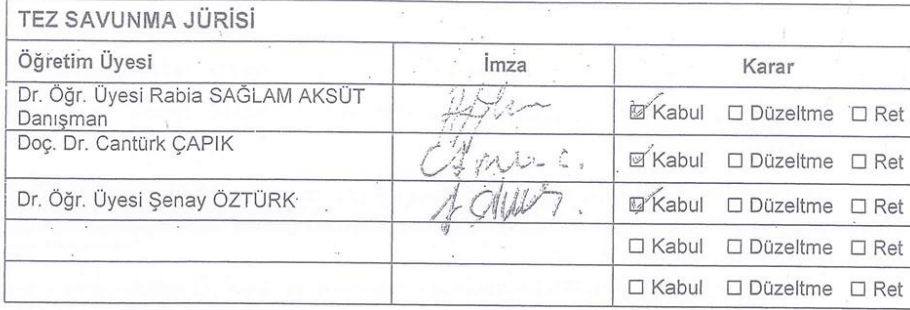 TEZ SAVUNMA JÜRİSİ
Öğretim Üyesi İmza Karar
Dr. Öğr. Üyesi Rabia SAĞLAM AKSÜT
Danışman
☑ Kabul ☐ Düzeltme ☐ Ret
Doç. Dr. Cantürk ÇAPIK
☑ Kabul ☐ Düzeltme ☐ Ret
Dr. Öğr. Üyesi Şenay ÖZTÜRK
☑ Kabul ☐ Düzeltme ☐ Ret
☐ Kabul ☐ Düzeltme ☐ Ret
☐ Kabul ☐ Düzeltme ☐ Ret